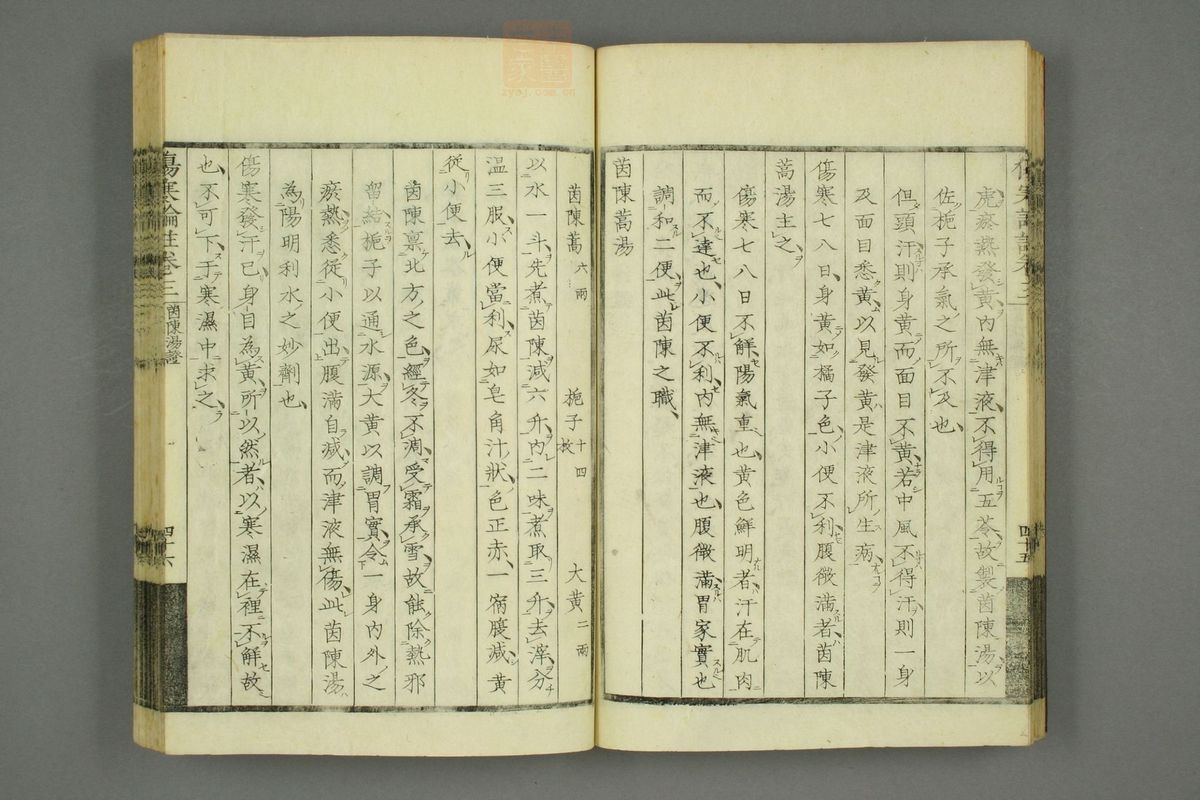 虎瘀熱發黃內無津液不得用五苓故製茵陳湯以
佐梔子承氣之所不及也
但頭汗則身黃而面目不黃若中風不得汗則一身
及面目悉黃以見發黃是津液所生病
傷寒七八日身黃如橘子色小便不利腹微滿者茵陳
蒿湯主之
傷寒七八日不解陽氣重也黃色鮮明者汗在肌肉
而不達也小便不利內無津液也腹微滿胃家實也
調和二便此茵陳之職
茵陳蒿湯
四十五
茵陳蒿六兩 梔子十四枚 大黃二兩
以水一斗先煮茵陳減六升內二味煮取三升去滓分
温三服小便當利尿如皂角汁狀色正赤一宿腹減黃
從小便去
茵陳稟北方之色經冬不凋受霜承雪故能除熱邪
留結梔子以通水源大黃以調胃實令一身內外之
瘀熱悉從小便出腹滿自減而津液無傷此茵陳湯
為陽明利水之妙劑也
傷寒發汗已身目為黃所以然者以寒濕在裡不解故
也不可下于寒濕中求之
傷寒論註卷三 茵陳湯證
四十六